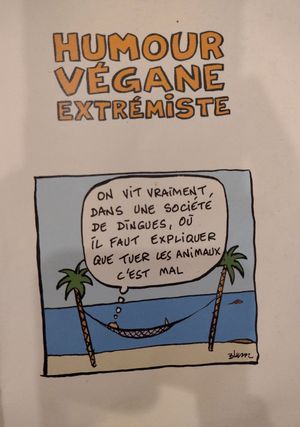 HUMOUR
VÉGANE
EXTRÉMISTE
ON VIT VRAIMENT,
DANS UNE SOCIÉTÉ
DE DINGUES, OÙ
IL FAUT EXPLIQUER
QUE TUER LES ANIMAUX
C'EST MAL